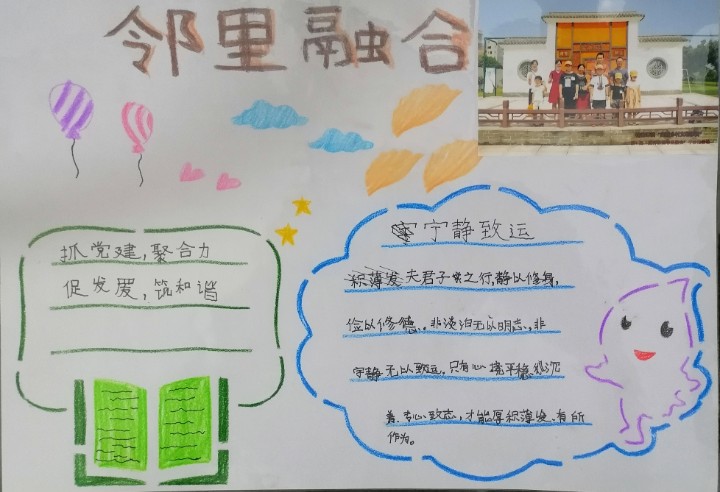 邻里融合
抓党建，聚合力
促发展，筑和谐
宁静致远
积薄发夫君子之行，静以修身，
俭以修德，非淡泊无以明志，非
宁静无以致远，只有心境平稳沉
着、专心致志，才能厚积薄发、有所
作为。